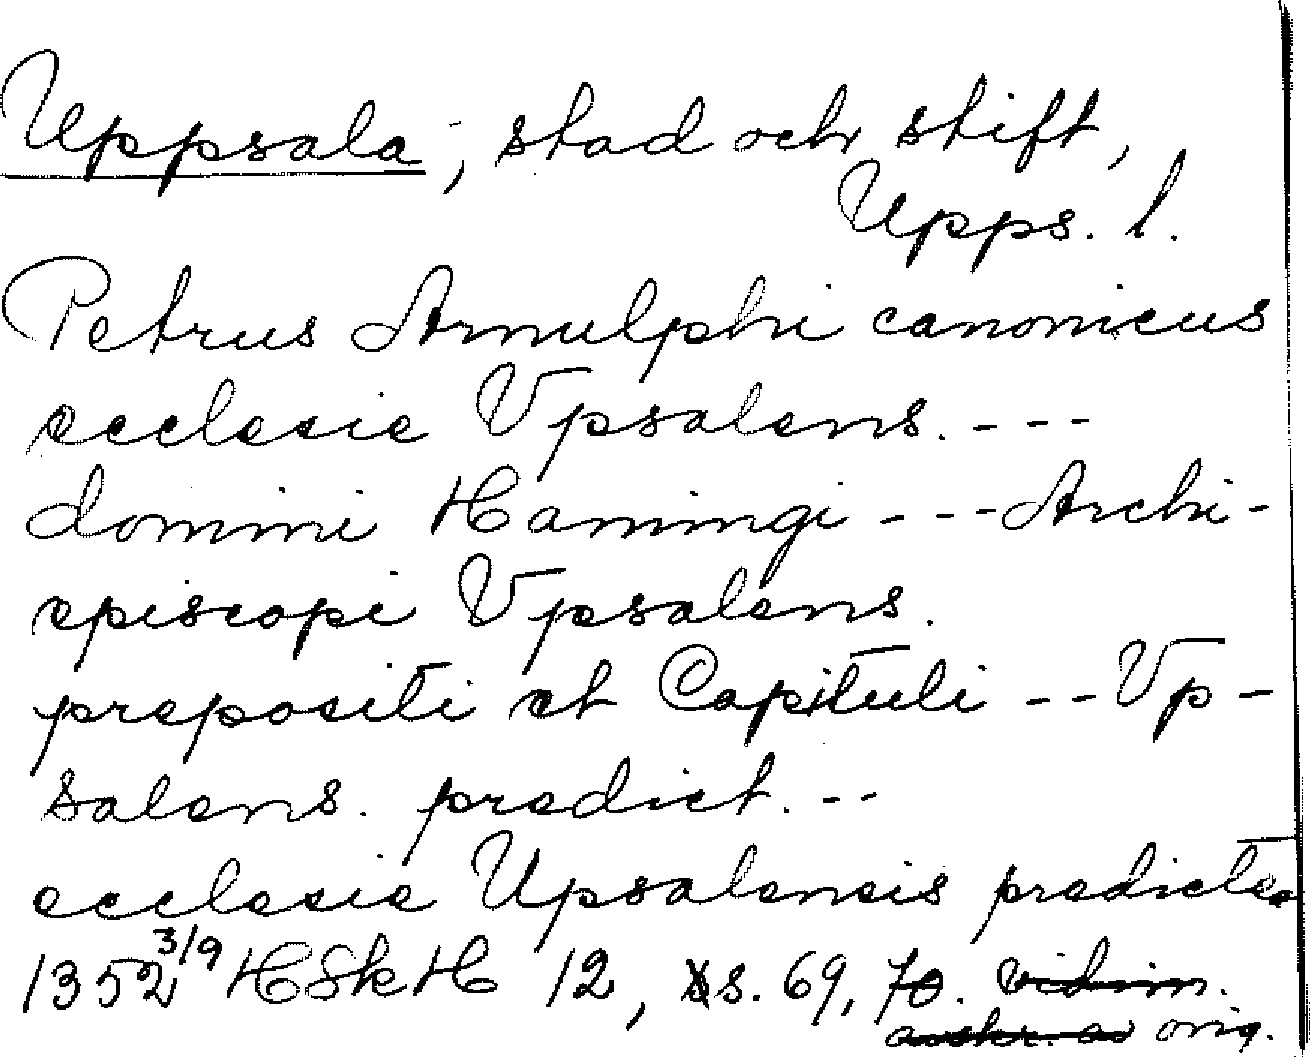 Uppsala, stad och stift,
Upps. l.
Petrus Arnulphi canonicus
ecclesie Vpsalens. ---
domini Hamingi --- Archi-
episcopi Vpsalens.
prepositi et Capituli -- Vp-
salens. predict. --
ecclesie Upsalensis predicte
1352 3/9 HSkH 12, s. 69, 70. vidim.
avskr. av orig.